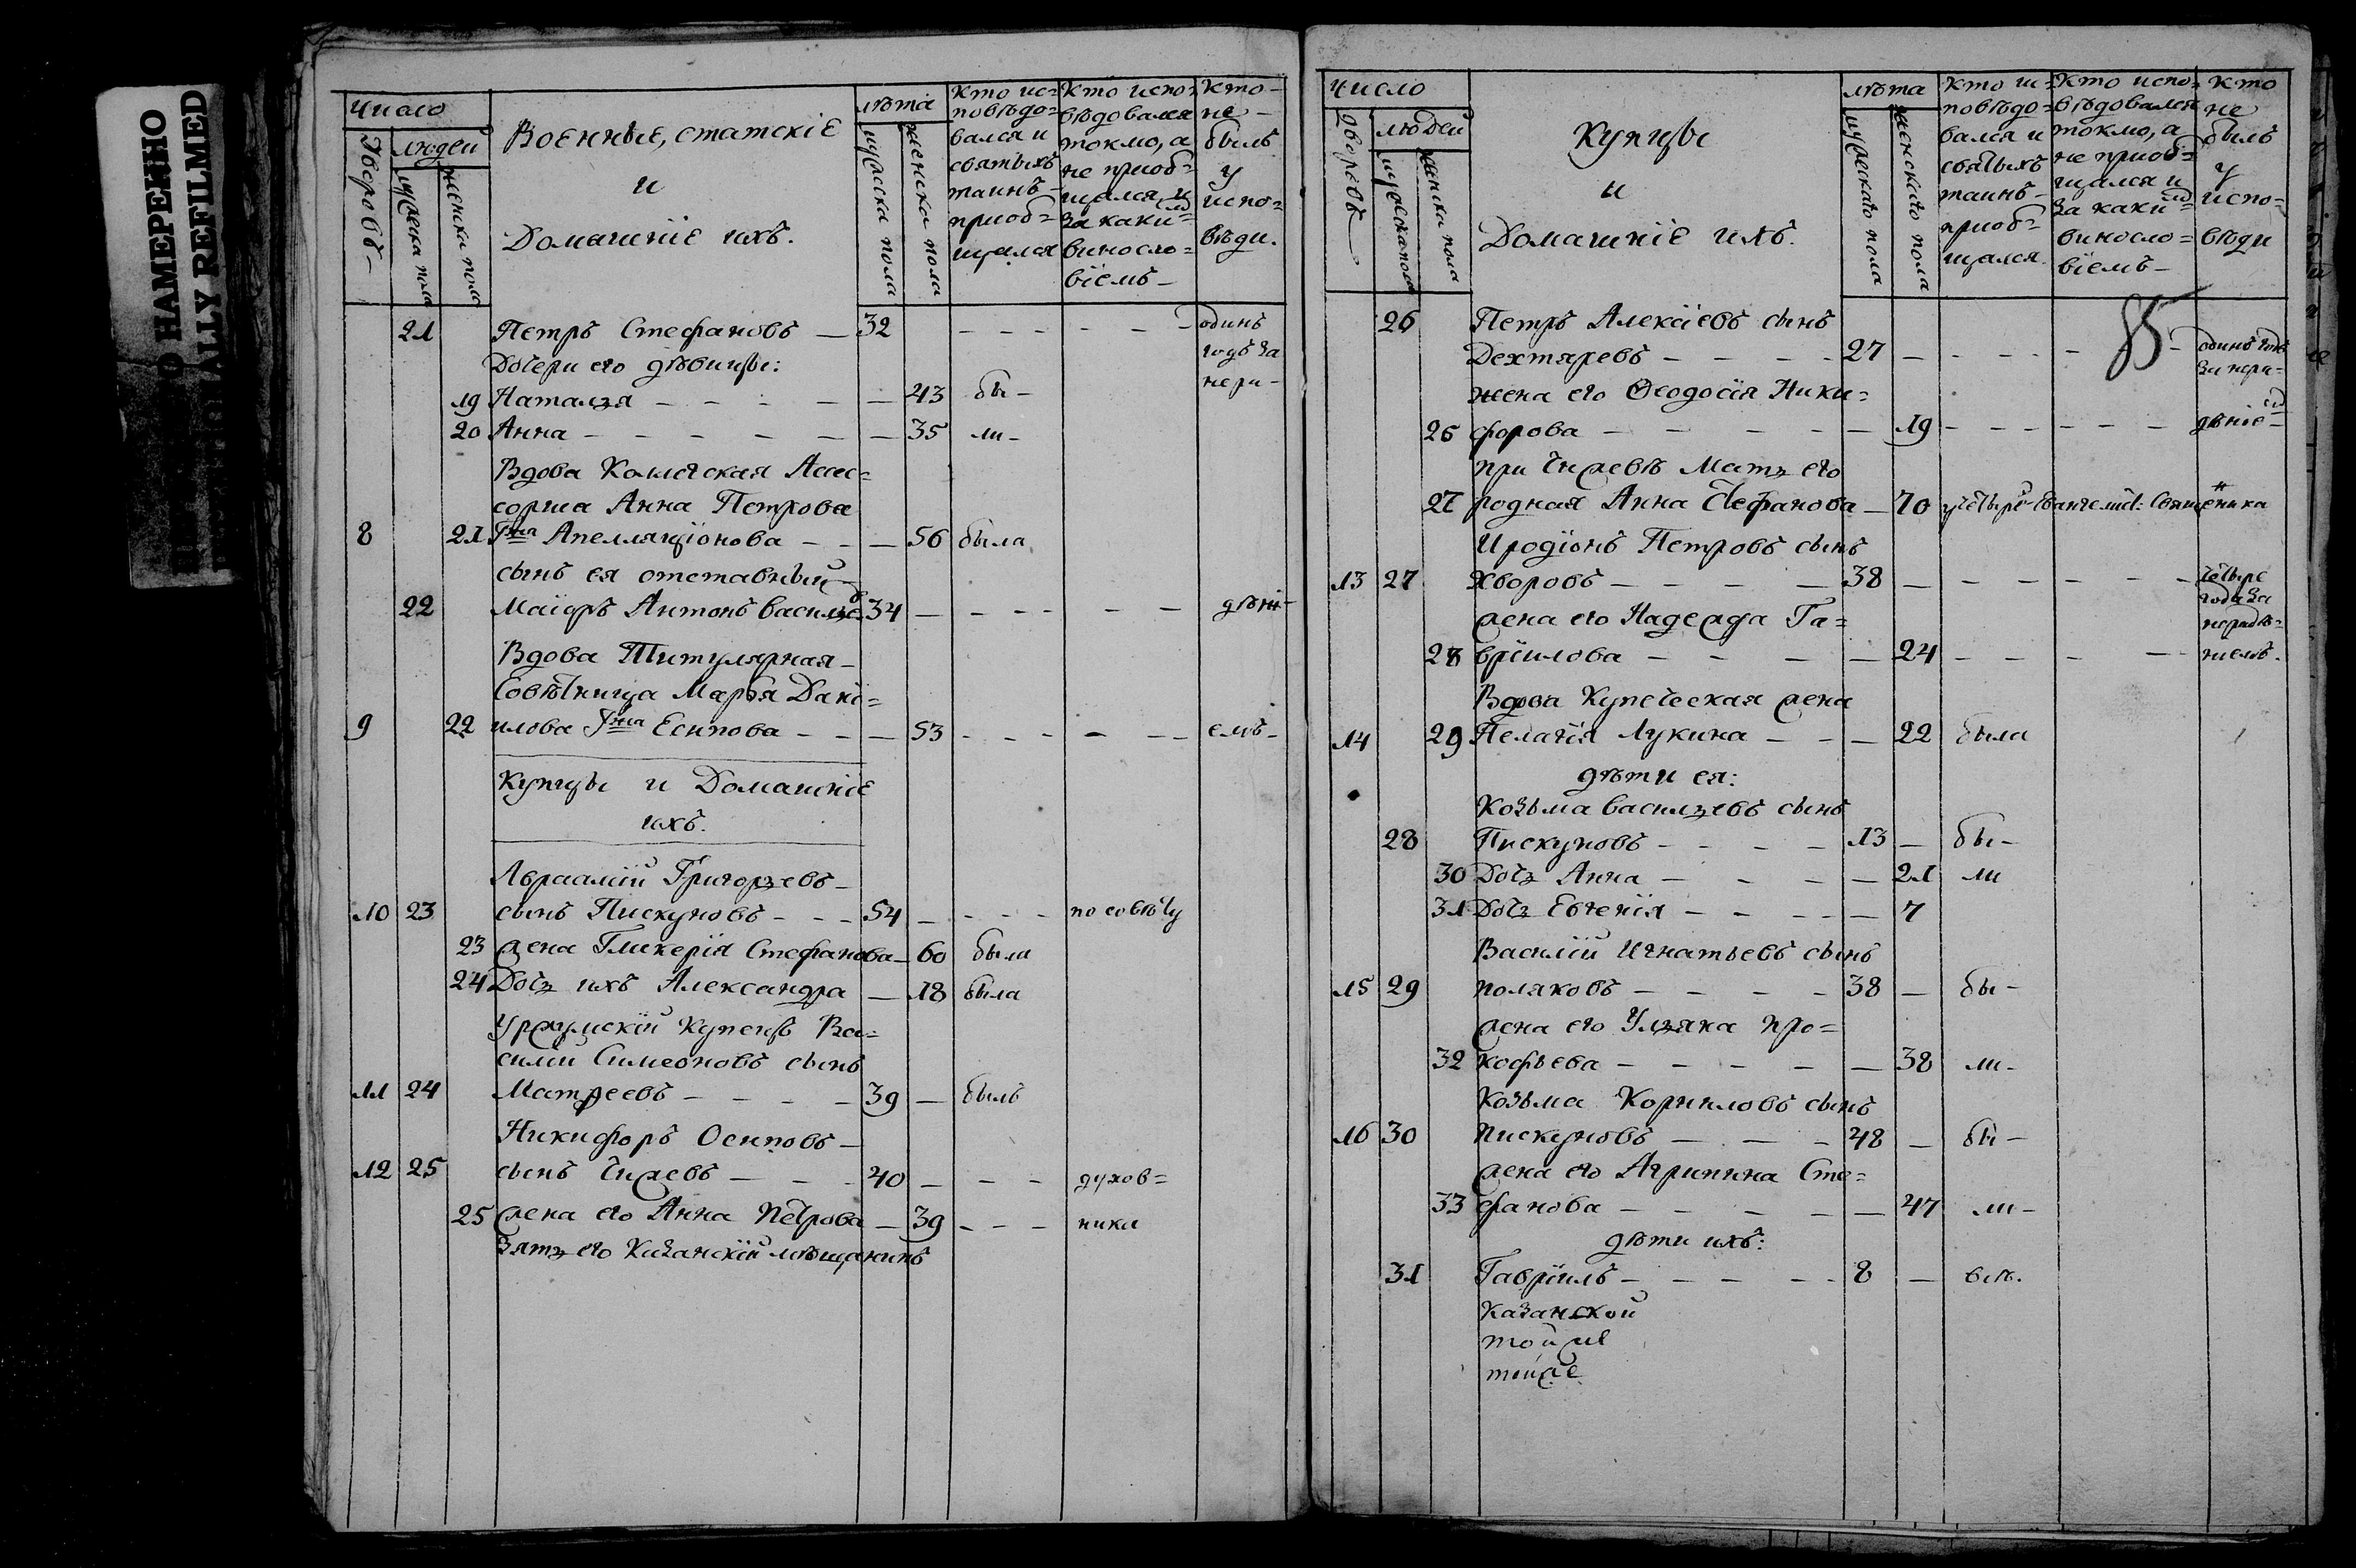 НАМЕРЕННО
ALLY REFILMED
Число
Дворовъ
людей
мужеска пола
женска пола
Военные, статскіе
и
Домашніе ихъ.
лѣта
мужеска пола
женска пола
Кто ис=
повѣдо=
вался и
святыхъ
таинъ
приоб=
щался
Кто испо=
вѣдовался
токмо, а
не приоб=
щался, и
за каки=
винослo=
віемъ
Кто
не
былъ
у
испо=
вѣди.
21 Петръ Стефановъ 32 одинъ
годъ за
Дочери его дѣвицы:
19 Наталья 43 бы- нери-
20 Анна 35 ли-
Вдова Коллежская Асес=
сорша Анна Петрова
8 21 Гжа Апелляціонова 56 была
сынъ ея отставный
22 Маіоръ Антонъ Васильевъ 34 дѣні-
Вдова Титулярная
Совѣтница Марья Дані=
9 22 илова Гжа Есипова 53 емъ-
Купцы и Домашніе
ихъ.
Авраамій Григорьевъ
10 23 сынъ Пискуновъ 54 по совѣту
23 жена Гликерія Стефанова 60 была
24 Дочь ихъ Александра 18 была
Уржумскій Купецъ Ва=
силій Симеоновъ сынъ
11 24 Матвеевъ 39 былъ
Никифоръ Осиповъ
12 25 сынъ Чижевъ 40 духов=
25 жена его Анна Петрова 39 ника
Зять его Казанскій мѣщанинъ
Число
дворовъ
людей
мужеска пола
женска пола
Купцы
и
Домашніе ихъ.
лѣта
мужескаго пола
женскаго пола
Кто ис=
повѣдо=
вался и
святыхъ
таинъ
приоб=
щался.
Кто испо=
вѣдовался
токмо, а
не приоб=
щался и
за каки=
винослo=
віемъ
Кто
не
былъ
у
испо=
вѣди
85
26 Петръ Алексіевъ сынъ
Дехтяревъ 27 одинъ годъ
за нера=
жена его Ѳеодосія Ники=
26 форова 19 дѣніе
при Чижевѣ Мать его
27 родная Анна Стефанова 70 у четыре Евангелист: Священника
Иродіонъ Петровъ сынъ
13 27 Хворовъ 38 четыре
года за
жена его Надежда Га= нерадѣ=
28 вріилова 24 ніемъ.
Вдова Купеческая жена
14 29 Пелагія Лукина 22 была
дѣти ея:
Козьма Васильевъ сынъ
28 Пискуновъ 13 бы-
30 Дочь Анна 21 ли
31 Дочь Евгенія 7
Василій Игнатьевъ сынъ
15 29 Поляковъ 38 бы-
жена его Ульяна Про=
32 кофьева 38 ли-
Козьма Корниловъ сынъ
16 30 Пискуновъ 48 бы-
жена его Агрипина Сте=
33 фанова 47 ли-
дѣти ихъ:
31 Гавріилъ 8
Казанской
тойже
тойже